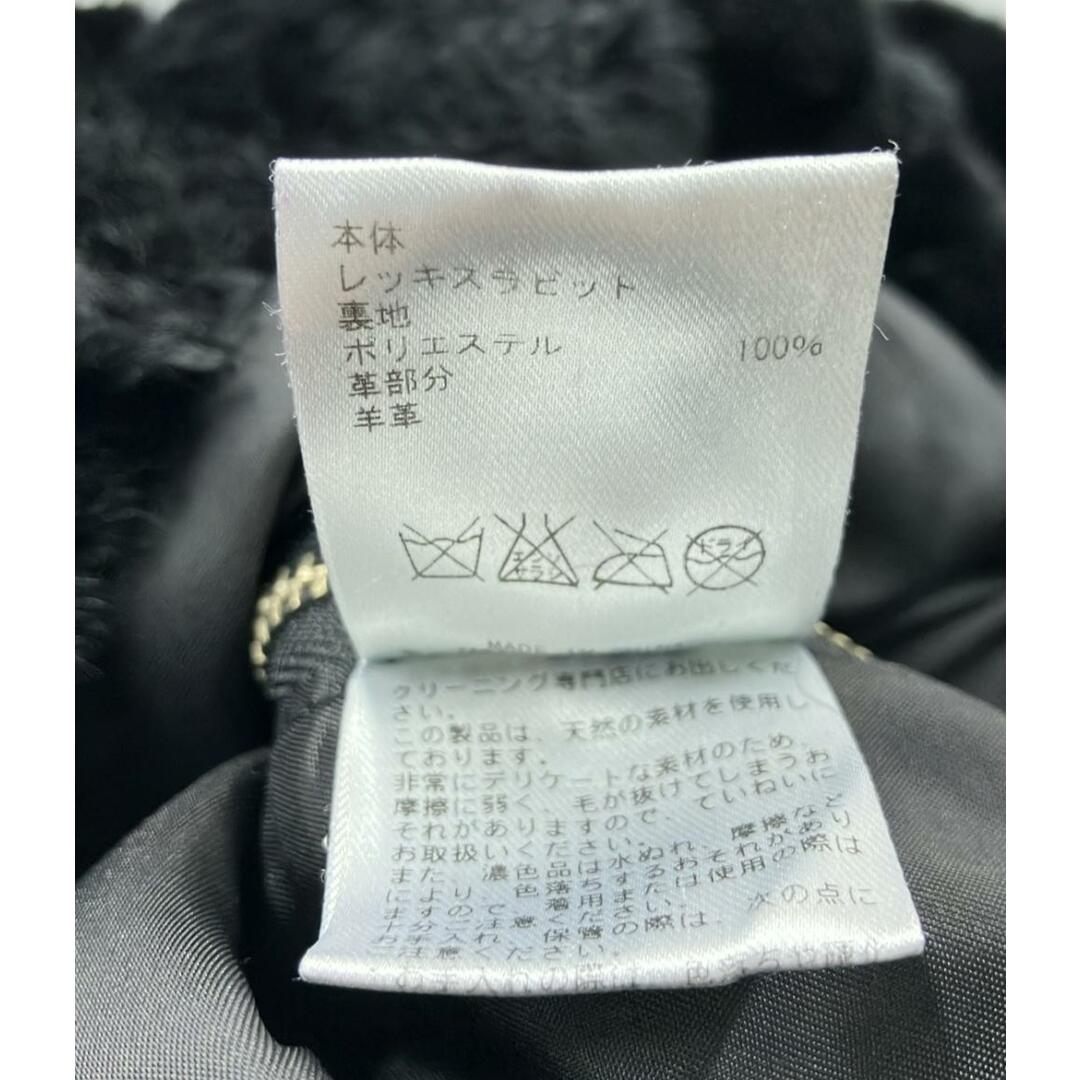 本体
レッキスラビット
裏地
ポリエステル 100%
革部分
羊革
エンソ
サラシ
ドライ
MADE
クリーニング専門店にお出しくだ
さい。
この製品は、天然の素材を使用し
ております。
非常にデリケートな素材のため、
摩擦に弱く、毛が抜けてしまうお
それがありますので、ていねいに
お取扱いください。
また、濃色品は水ぬれ、摩擦など
により、色落ちするおそれがあり
ますので着用または使用の際は
十分ご注意ください。
お手入れ、保管の際は、次の点に
ご注意ください。
・お手入れの際は、色落ちや